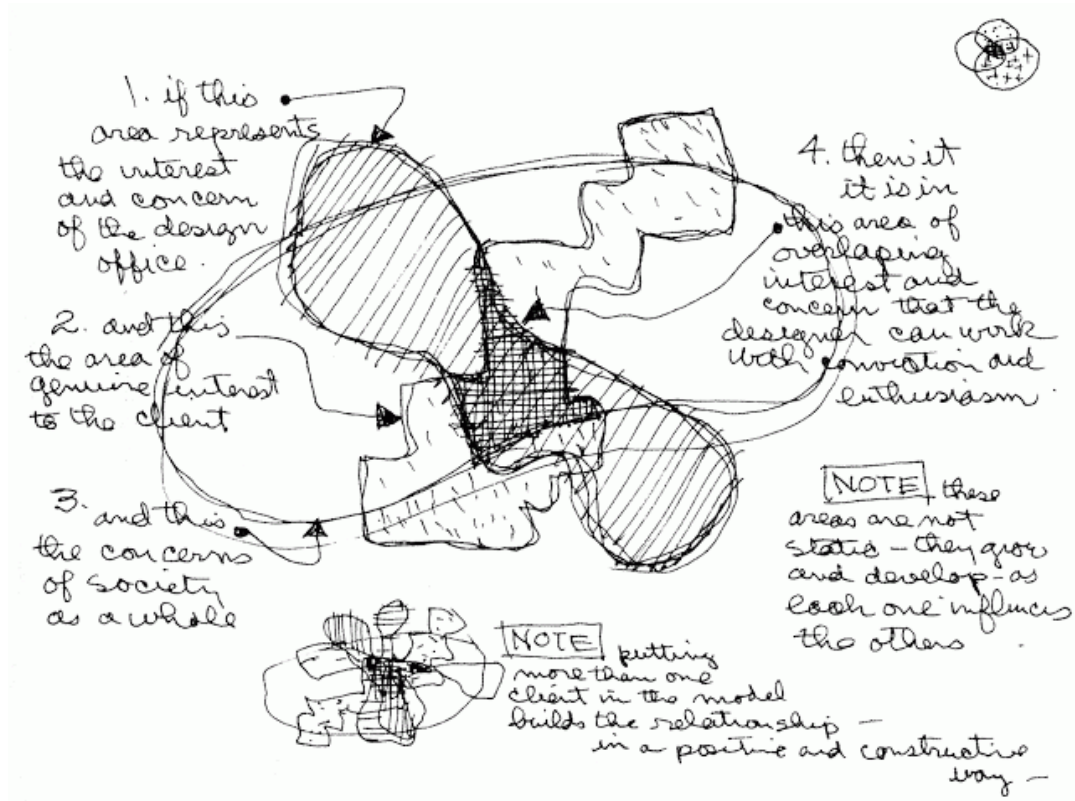 1. if this
area represents
the interest
and concern
of the design
office.
2. and this
the area of
genuine interest
to the client
3. and this
the concerns
of society
as a whole
4. then it
it is in
this area of
overlaping
interest and
concern that the
designer can work
with convication and
enthusiasm.
NOTE these
areas are not
static - they grow
and develop - as
each one influences
the others.
NOTE putting
more than one
client in the model
builds the relationship -
in a positive and constructive
way -